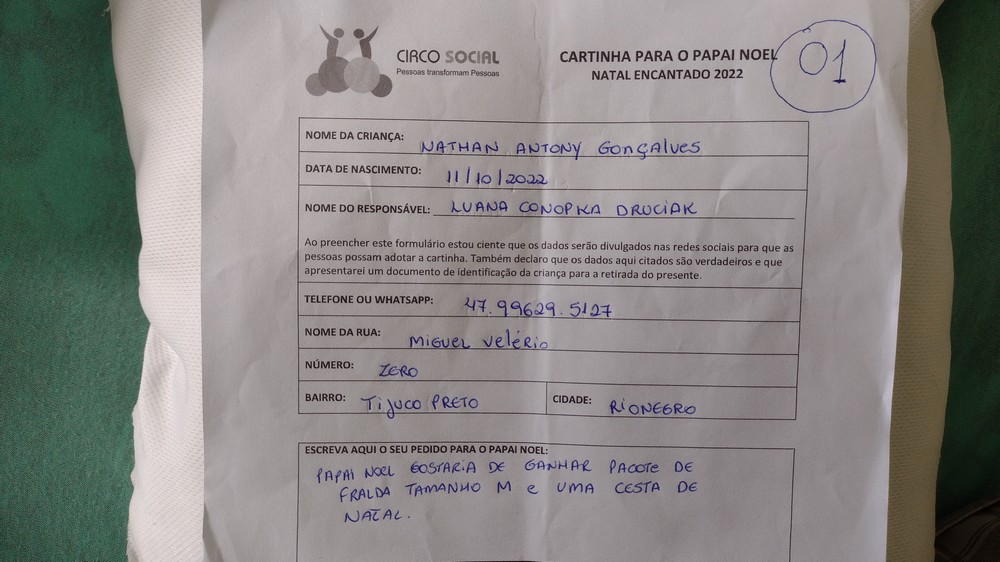 CIRCO SOCIAL
Pessoas transformam Pessoas
CARTINHA PARA O PAPAI NOEL
NATAL ENCANTADO 2022
01
NOME DA CRIANÇA: NATHAN ANTONY GONÇALVES
DATA DE NASCIMENTO: 11/10/2022
NOME DO RESPONSÁVEL: LUANA CONOPKA DRUCIAK
Ao preencher este formulário estou ciente que os dados serão divulgados nas redes sociais para que as
pessoas possam adotar a cartinha. Também declaro que os dados aqui citados são verdadeiros e que
apresentarei um documento de identificação da criança para a retirada do presente.
TELEFONE OU WHATSAPP: 47.99629.5127
NOME DA RUA: MIGUEL VELÉRIO
NÚMERO: ZERO
BAIRRO: TIJUCO PRETO CIDADE: RIONEGRO
ESCREVA AQUI O SEU PEDIDO PARA O PAPAI NOEL:
PAPAI NOEL GOSTARIA DE GANHAR PACOTE DE
FRALDA TAMANHO M e UMA CESTA DE
NATAL.